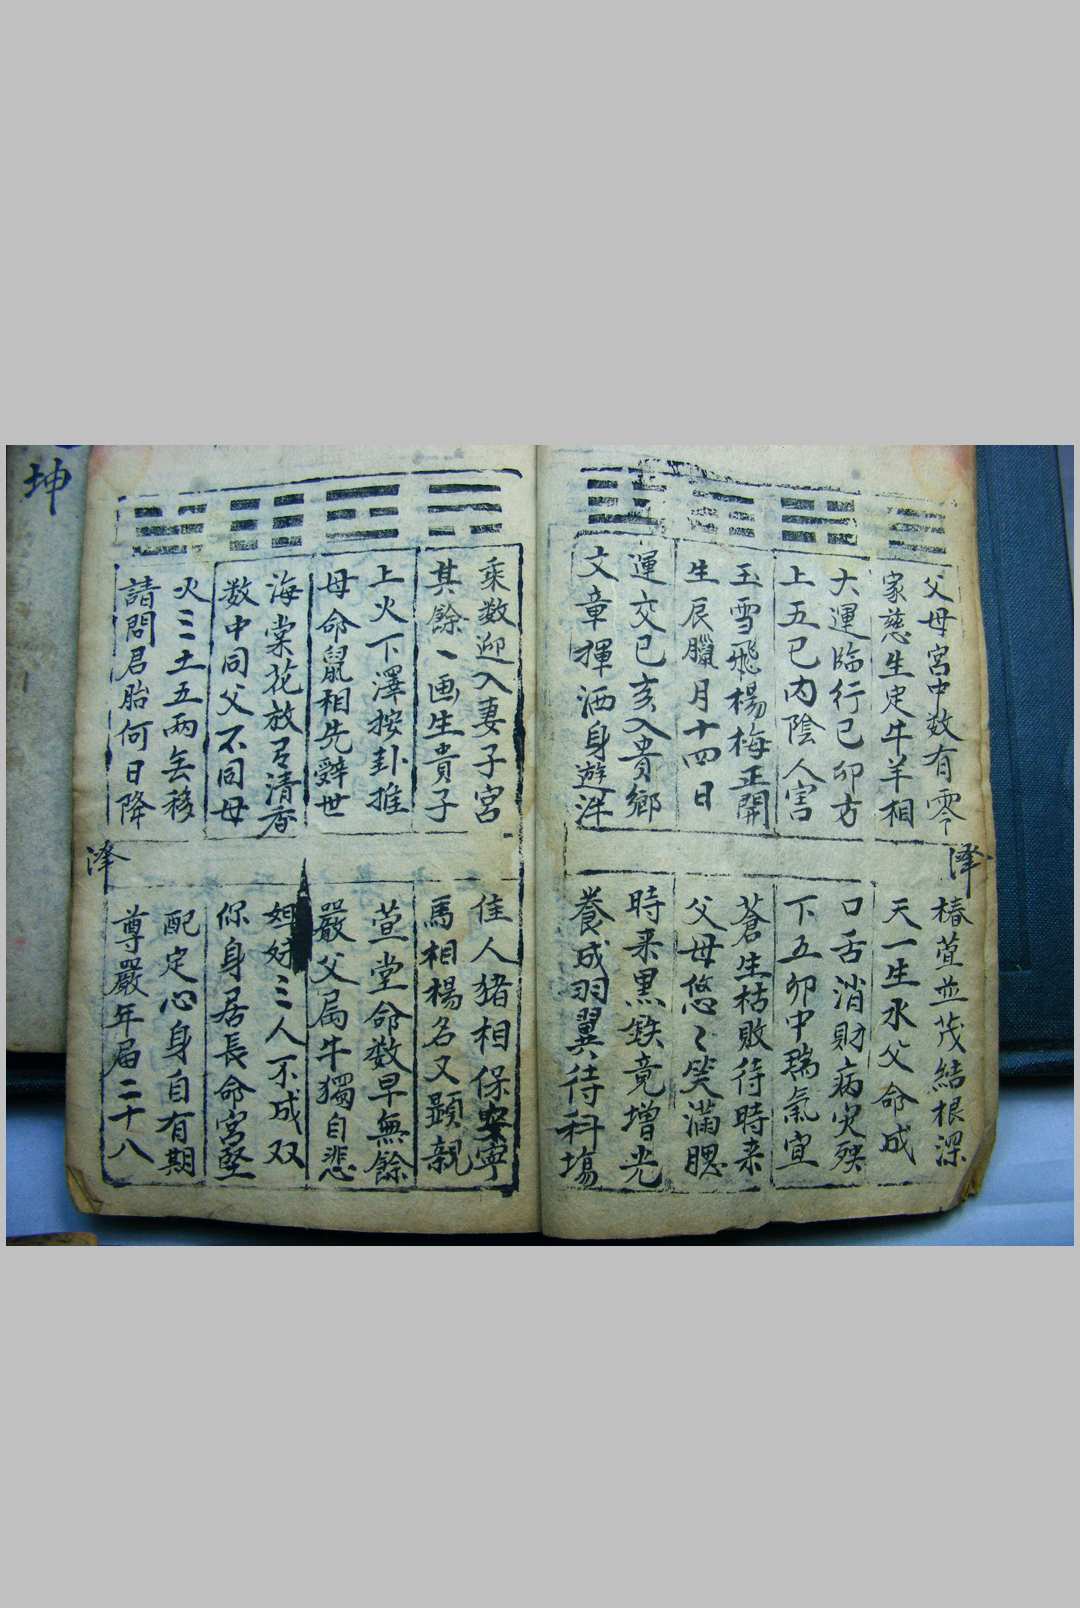 父母宮中数有零
椿萱並茂結根深
家慈生定牛羊相
天一生水父命成
大運臨行己卯方
口舌消財病灾殃
上五己内陰人害
下五卯中瑞氣宜
玉雪飛楊梅正開
蒼生枯敗待時来
生辰臘月十四日
父母悠〻笑滿腮
運交己亥入貴鄉
時来黑鉄竟增光
文章揮洒身遊泮
養成羽翼待科塲
泽
乘数迎入妻子宮
佳人猪相保安寧
其餘一画生貴子
馬相楊名又顕親
上火下澤按卦推
萱堂命数早無餘
母命鼠相先辭世
嚴父属牛獨自悲
海棠花放有清香
姐妹三人不成双
数中同父不同母
保身居長命宮堅
火三土五兩無移
配定心身自有期
請問君胎何日降
尊嚴年届二十八
泽
坤